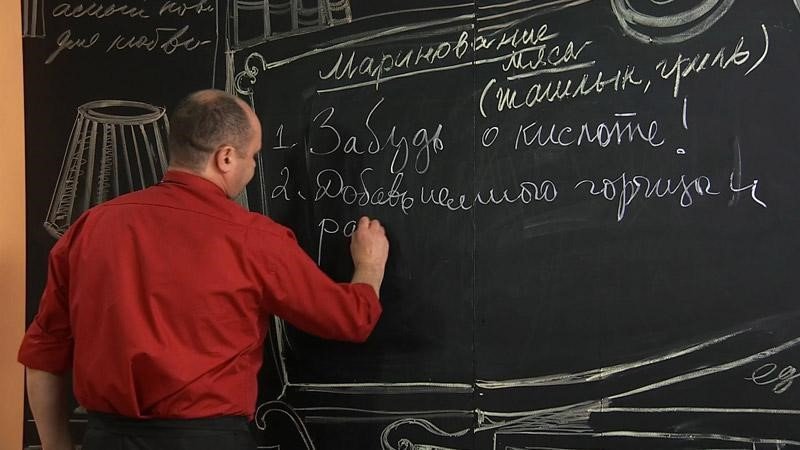 для любви
Маринование
мяса
(шашлык, гриль)
1. Забудь о кислоте!
2. Добавь немного горчицы и
ра
ед